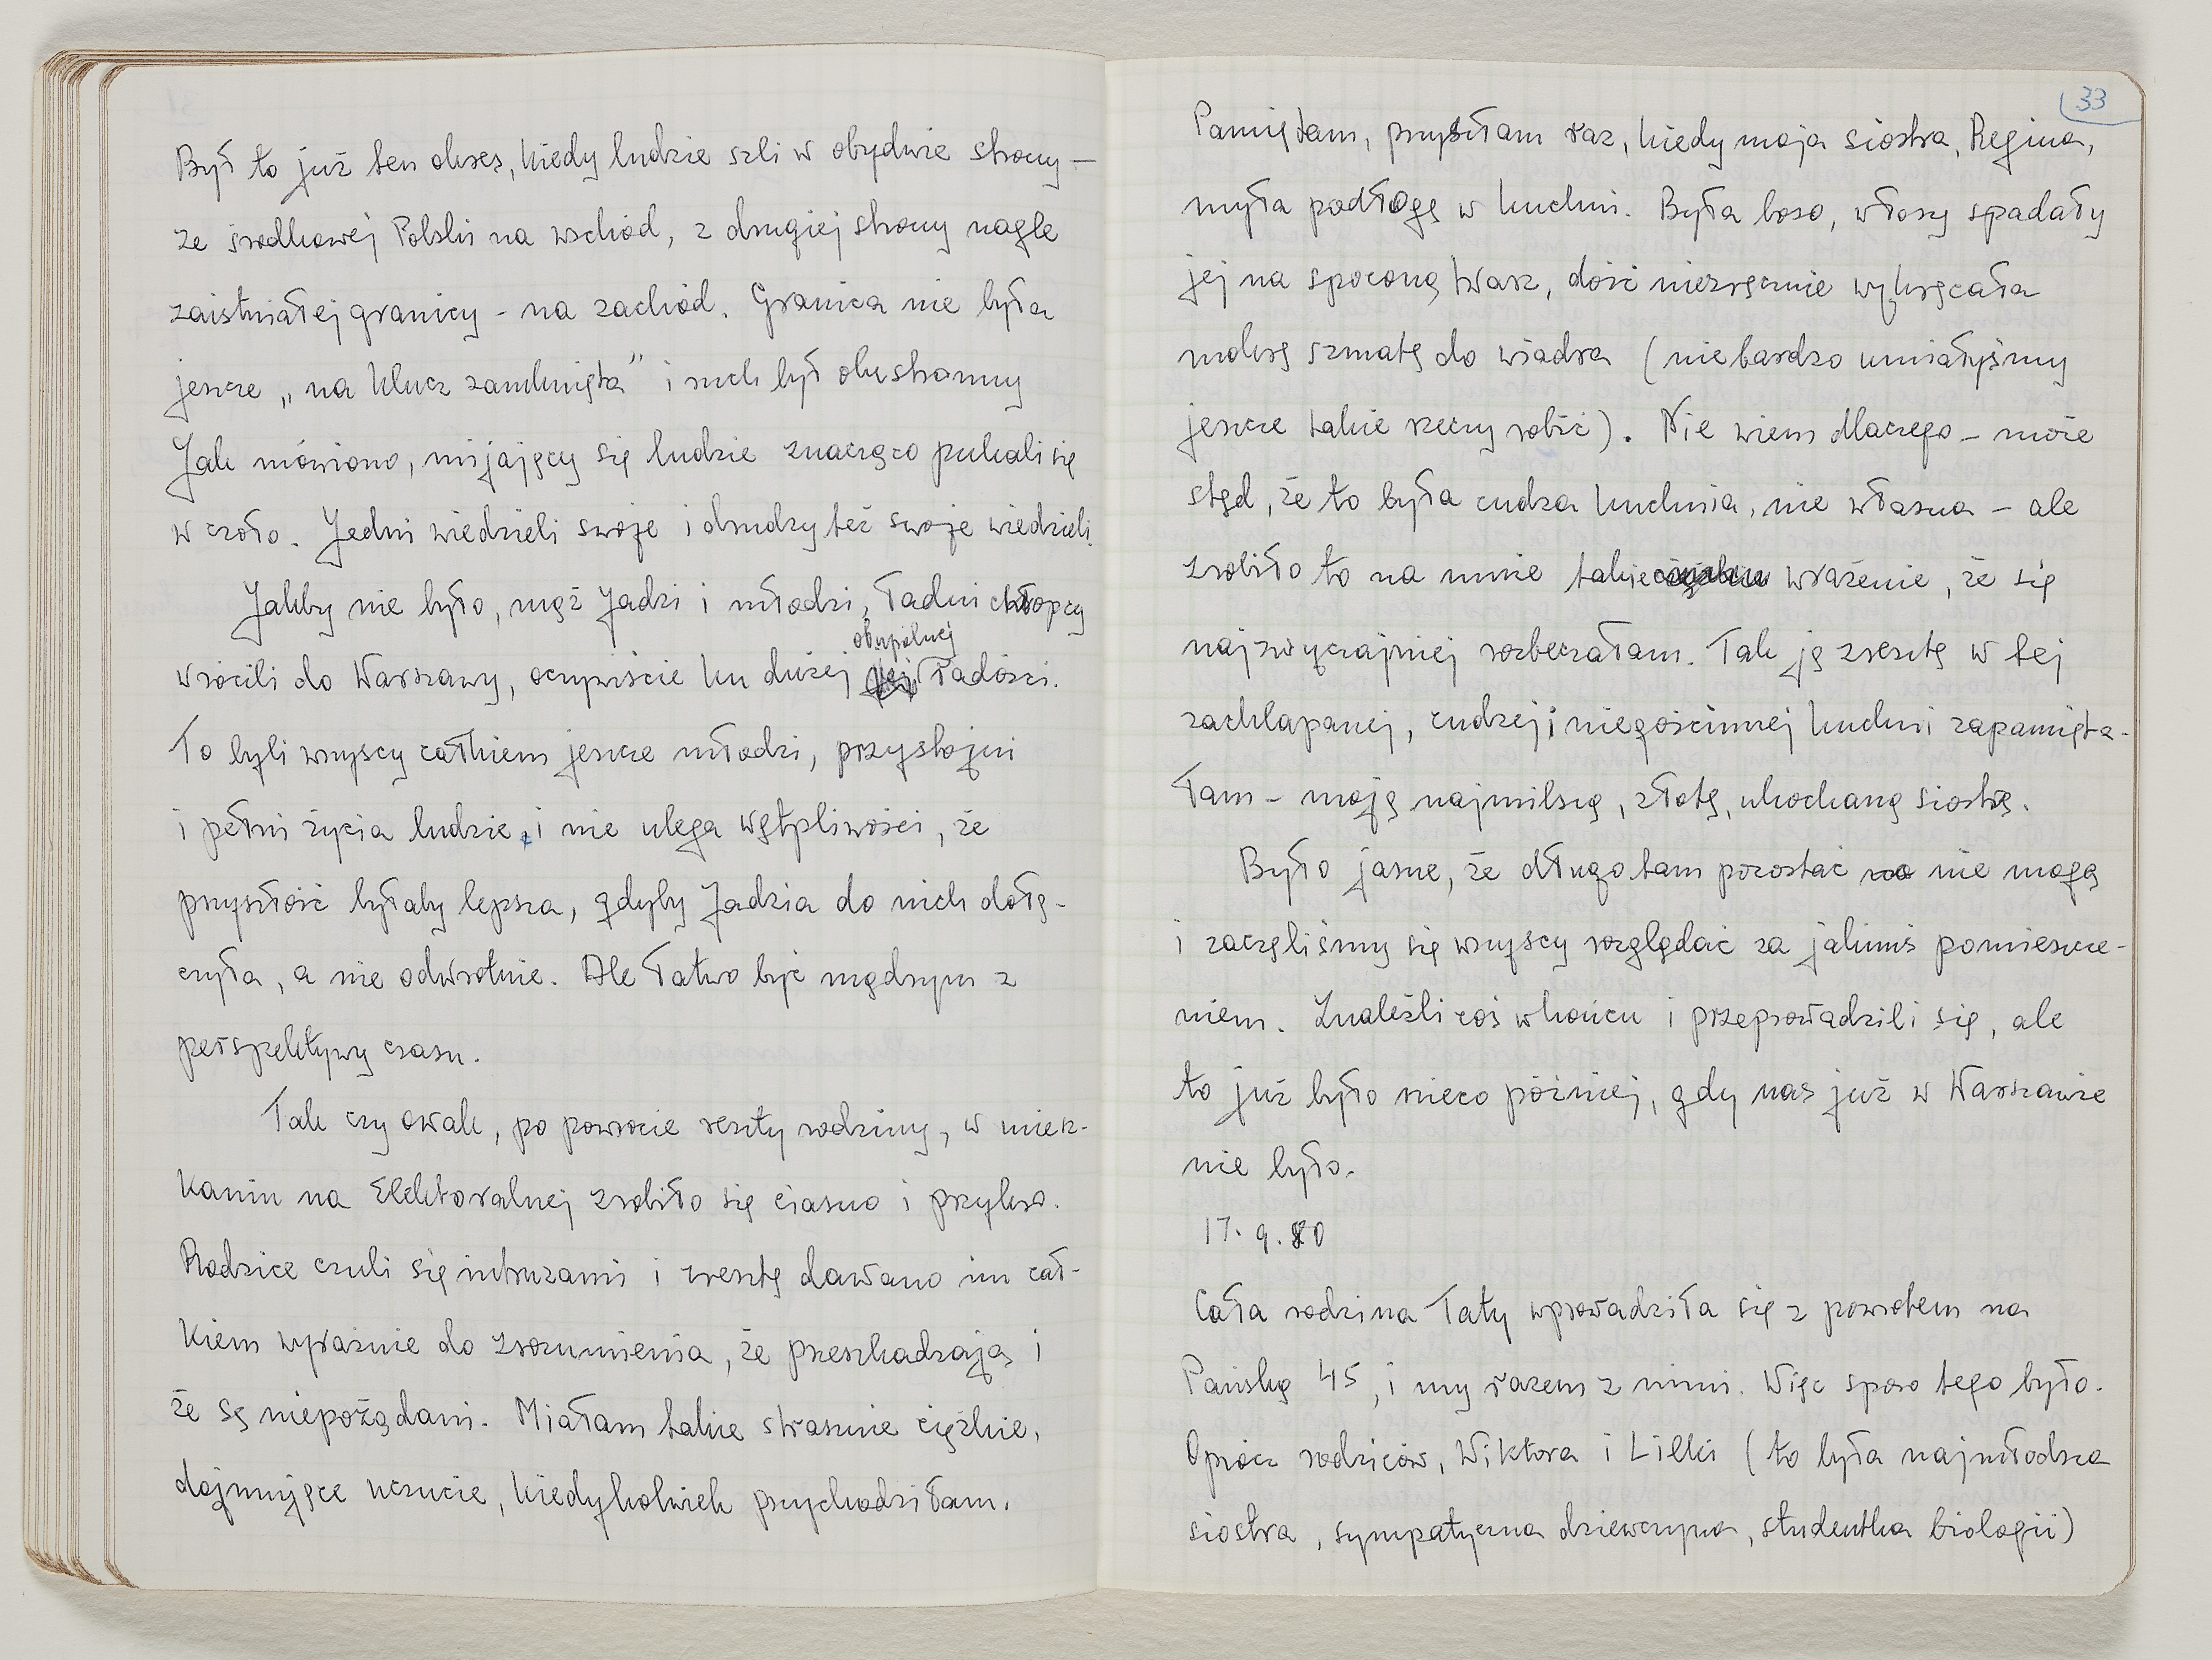 Był to już ten okres, kiedy ludzie szli w obydwie strony –
ze środkowej Polski na wschód, z drugiej strony nagle
zaistniałej granicy – na zachód. Granica nie była
jeszcze „na klucz zamknięta” i ruch był obustronny
Jak mówiono, mijający się ludzie znacząco pukali się
w czoło. Jedni wiedzieli swoje i drudzy też swoje wiedzieli.
Jakby nie było, mąż Jadzi i młodzi, ładni chłopcy
obupólnej
wrócili do Warszawy, oczywiście ku dużej radości.
To byli wszyscy całkiem jeszcze młodzi, przystojni
i pełni życia ludzie, i nie ulega wątpliwości, że
przyszłość byłaby lepsza, gdyby Jadzia do nich dołą-
czyła, a nie odwrotnie. Ale łatwo być mądrym z
perspektywy czasu.
Tak czy owak, po powrocie reszty rodziny, w miesz-
kaniu na Elektoralnej zrobiło się ciasno i przykro.
Rodzice czuli się intruzami i zresztą dawano im cał-
kiem wyraźnie do zrozumienia, że przeszkadzają i
że są niepożądani. Miałam takie strasznie ciężkie,
dojmujące uczucie, kiedykolwiek przychodziłam.
33
Pamiętam, przyszłam raz, kiedy moja siostra, Regina,
myła podłogę w kuchni. Była boso, włosy spadały
jej na spoconą twarz, dość niezręcznie wykręcała
mokrą szmatę do wiadra (nie bardzo umiałyśmy
jeszcze takie rzeczy robić). Nie wiem dlaczego – może
stąd, że to była cudza kuchnia, nie własna – ale
zrobiło to na mnie takie wrażenie, że się
najzwyczajniej rozbeczałam. Tak ją zresztą w tej
zachlapanej, cudzej i niegościnnej kuchni zapamięta-
łam – moją najmilszą, złotą, ukochaną siostrę.
Było jasne, że długo tam pozostać nie mogą
i zaczęliśmy się wszyscy rozglądać za jakimś pomieszcze-
niem. Znaleźli coś w końcu i przeprowadzili się, ale
to już było nieco później, gdy nas już w Warszawie
nie było.
17. 9. 80
Cała rodzina Taty wprowadziła się z powrotem na
Pańską 45, i my razem z nimi. Więc sporo tego było.
Oprócz rodziców, Wiktora i Lilki (to była najmłodsza
siostra, sympatyczna dziewczyna, studentka biologii)